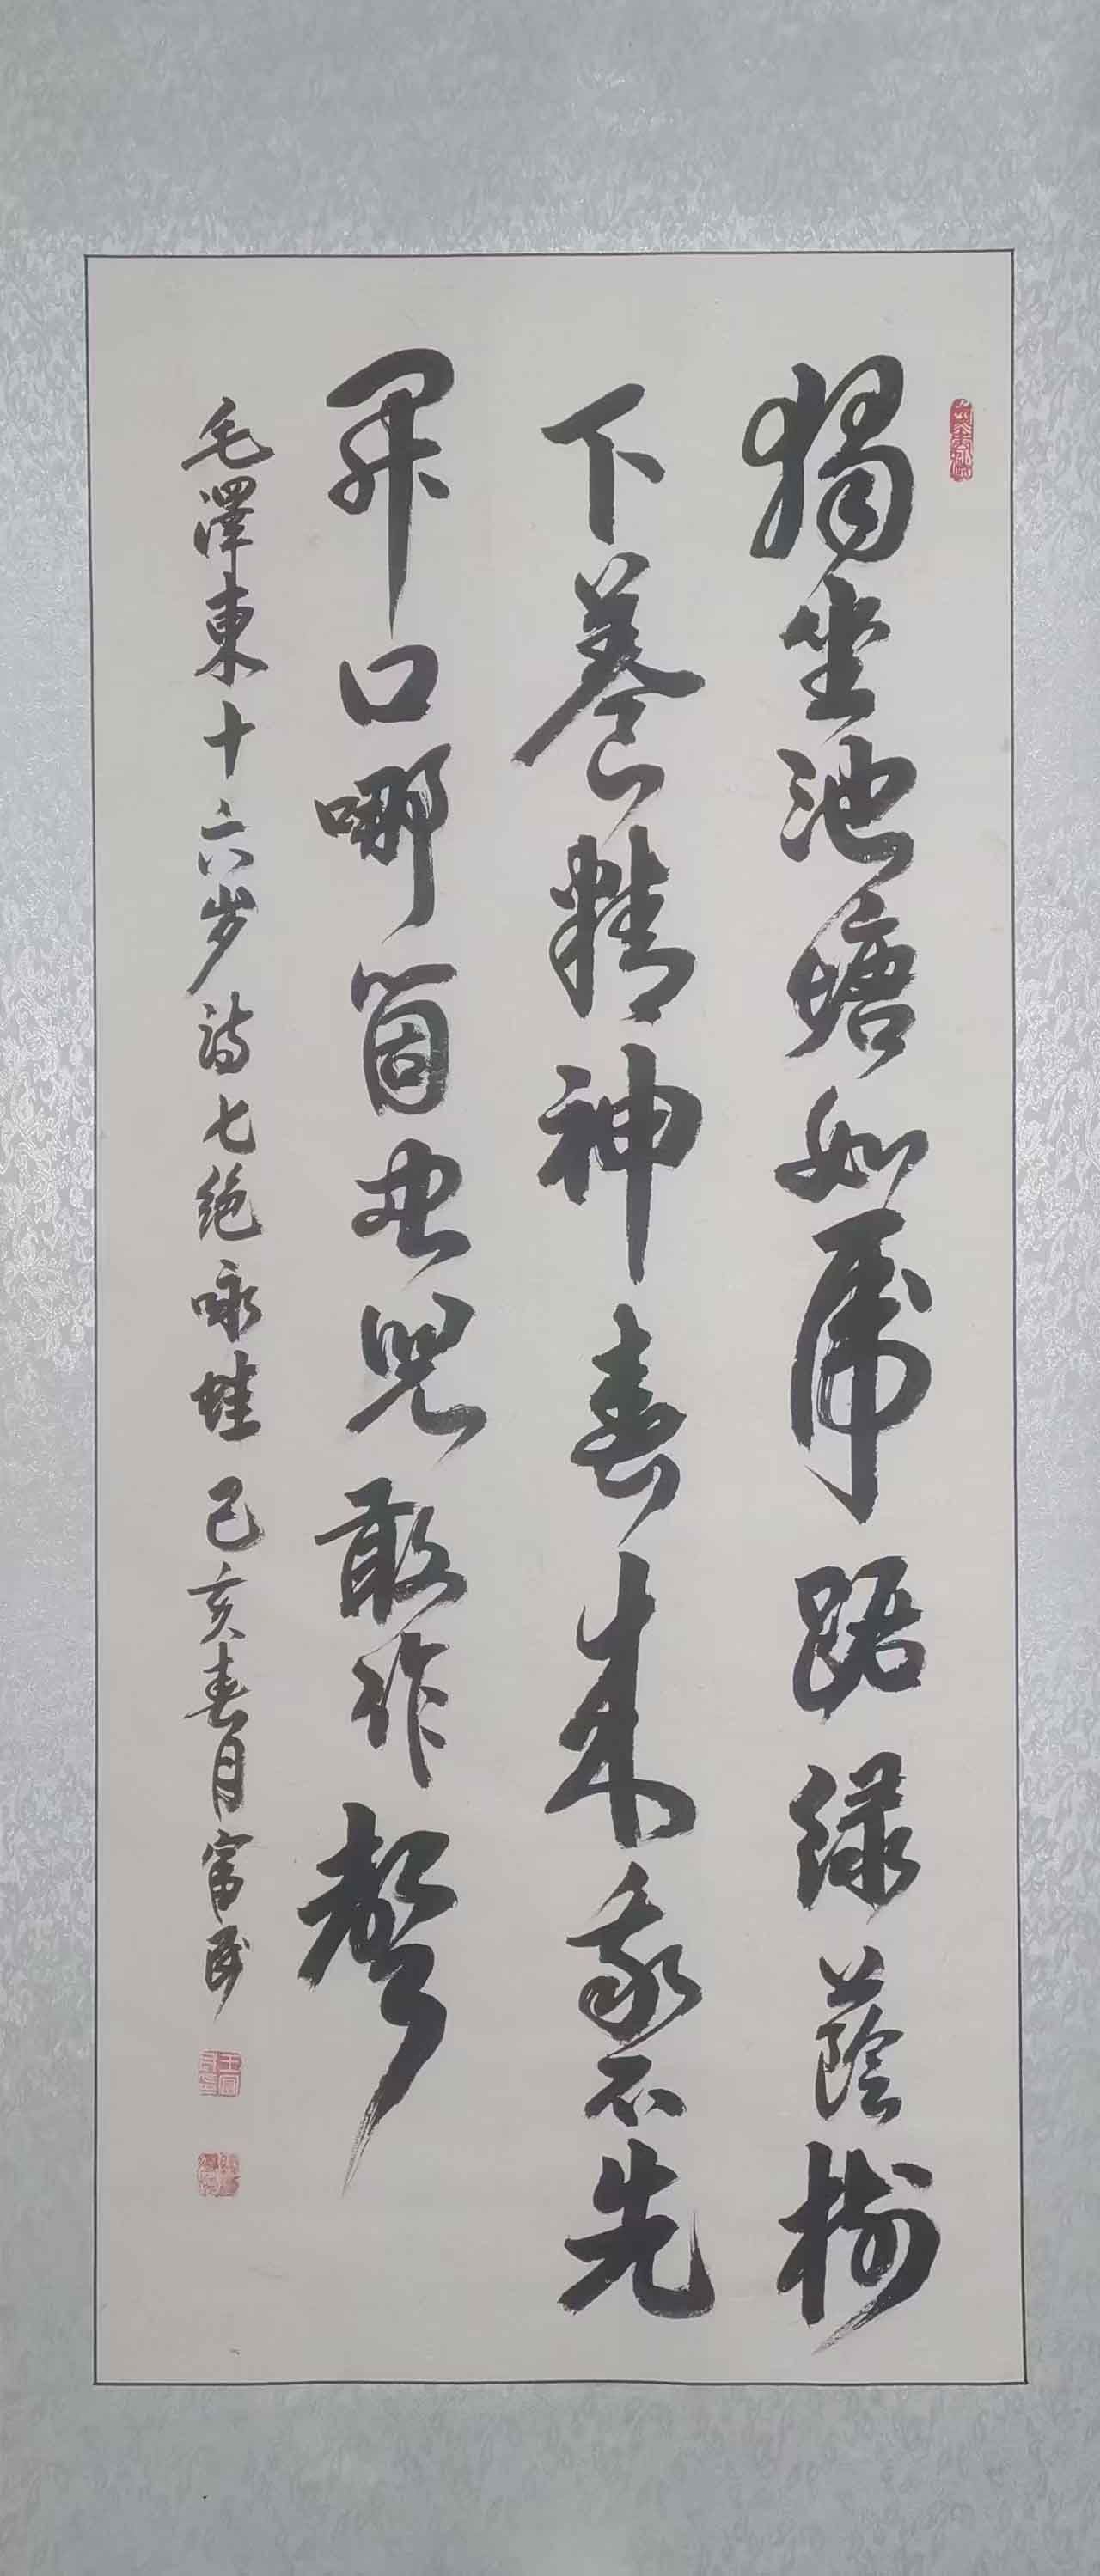 獨坐池塘如虎踞綠蔭樹
下養精神春來我不先
開口哪箇虫兒敢作聲
毛澤東十六岁詩七絕咏蛙 己亥春月富民